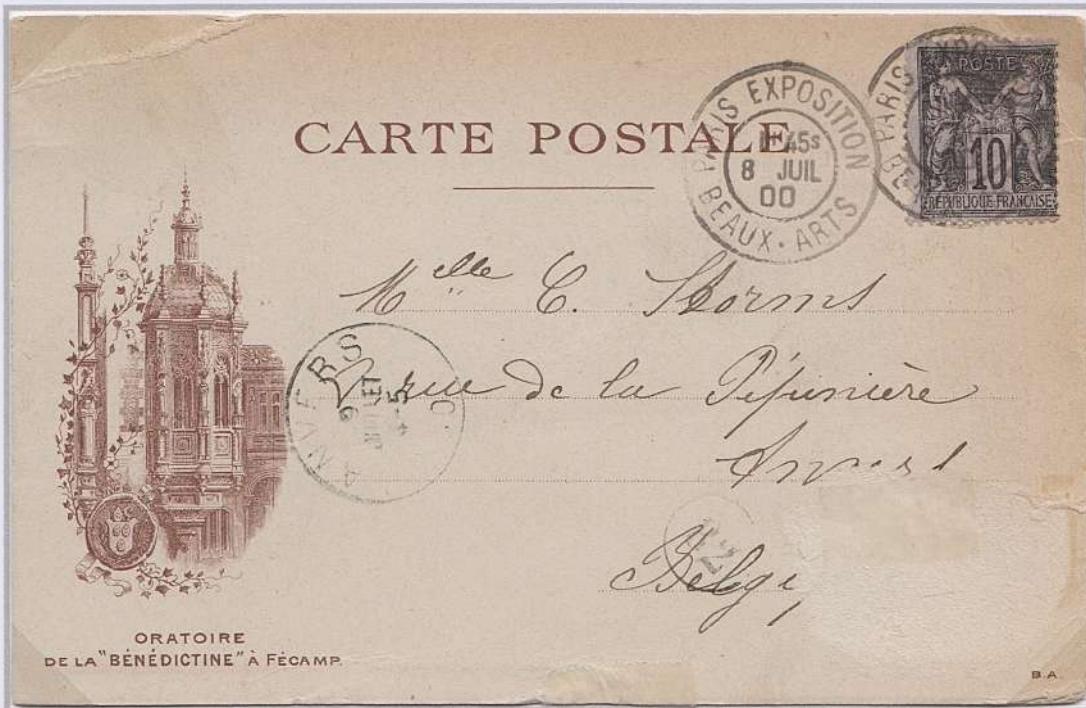 CARTE POSTALE
PARIS EXPOSITION
45s
8 JUIL
00
BEAUX-ARTS
PARIS EXPO
BE
POSTE
10
RÉPUBLIQUE FRANÇAISE
Melle C. Storms
rue de la Pépinière
Belgi
ANVERS
9
JUILLET
ORATOIRE
DE LA "BÉNÉDICTINE" À FÉCAMP.
B.A.